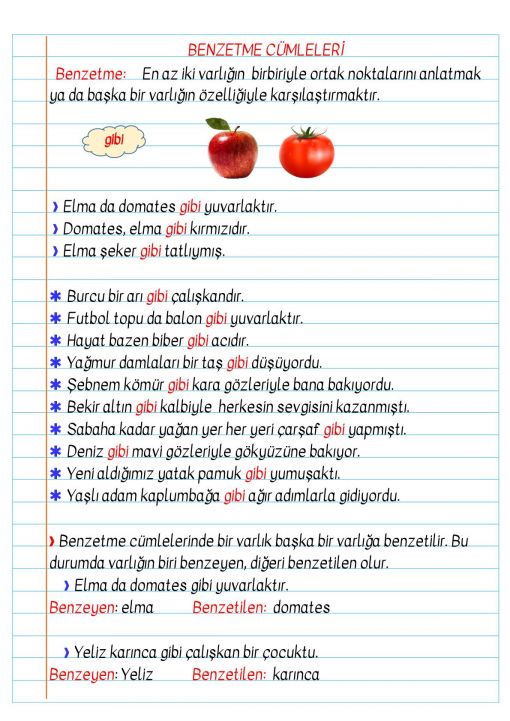 BENZETME CÜMLELERİ
Benzetme: En az iki varlığın birbiriyle ortak noktalarını anlatmak
ya da başka bir varlığın özelliğiyle karşılaştırmaktır.
gibi
❩ Elma da domates gibi yuvarlaktır.
❩ Domates, elma gibi kırmızıdır.
❩ Elma şeker gibi tatlıymış.
✱ Burcu bir arı gibi çalışkandır.
✱ Futbol topu da balon gibi yuvarlaktır.
✱ Hayat bazen biber gibi acıdır.
✱ Yağmur damlaları bir taş gibi düşüyordu.
✱ Şebnem kömür gibi kara gözleriyle bana bakıyordu.
✱ Bekir altın gibi kalbiyle herkesin sevgisini kazanmıştı.
✱ Sabaha kadar yağan yer her yeri çarşaf gibi yapmıştı.
✱ Deniz gibi mavi gözleriyle gökyüzüne bakıyor.
✱ Yeni aldığımız yatak pamuk gibi yumuşaktı.
✱ Yaşlı adam kaplumbağa gibi ağır adımlarla gidiyordu.
❩ Benzetme cümlelerinde bir varlık başka bir varlığa benzetilir. Bu
durumda varlığın biri benzeyen, diğeri benzetilen olur.
❩ Elma da domates gibi yuvarlaktır.
Benzeyen: elma Benzetilen: domates
❩ Yeliz karınca gibi çalışkan bir çocuktu.
Benzeyen: Yeliz Benzetilen: karınca